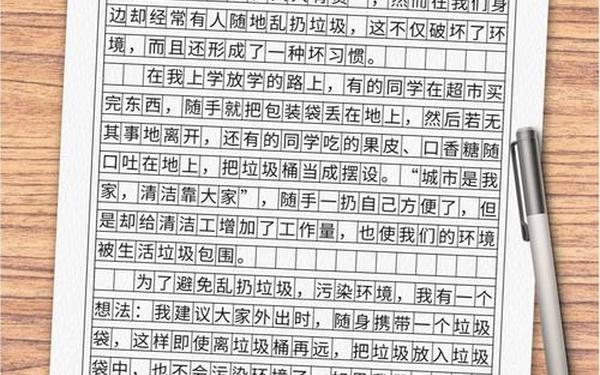 ，然而在我们身
边却经常有人随地乱扔垃圾，这不仅破坏了环
境，而且还形成了一种坏习惯。
在我上学放学的路上，有的同学在超市买
完东西，随手就把包装袋丢在地上，然后若无
其事地离开，还有的同学吃的果皮、口香糖随
口吐在地上，把垃圾桶当成摆设。“城市是我
家，清洁靠大家”，随手一扔自己方便了，但
是却给清洁工增加了工作量，也使我们的环境
被生活垃圾包围。
为了避免乱扔垃圾，污染环境，我有一个
想法：我建议大家外出时，随身携带一个垃圾
袋，这样即使离垃圾桶再远，把垃圾放入垃圾
袋中，也不会污染环境了